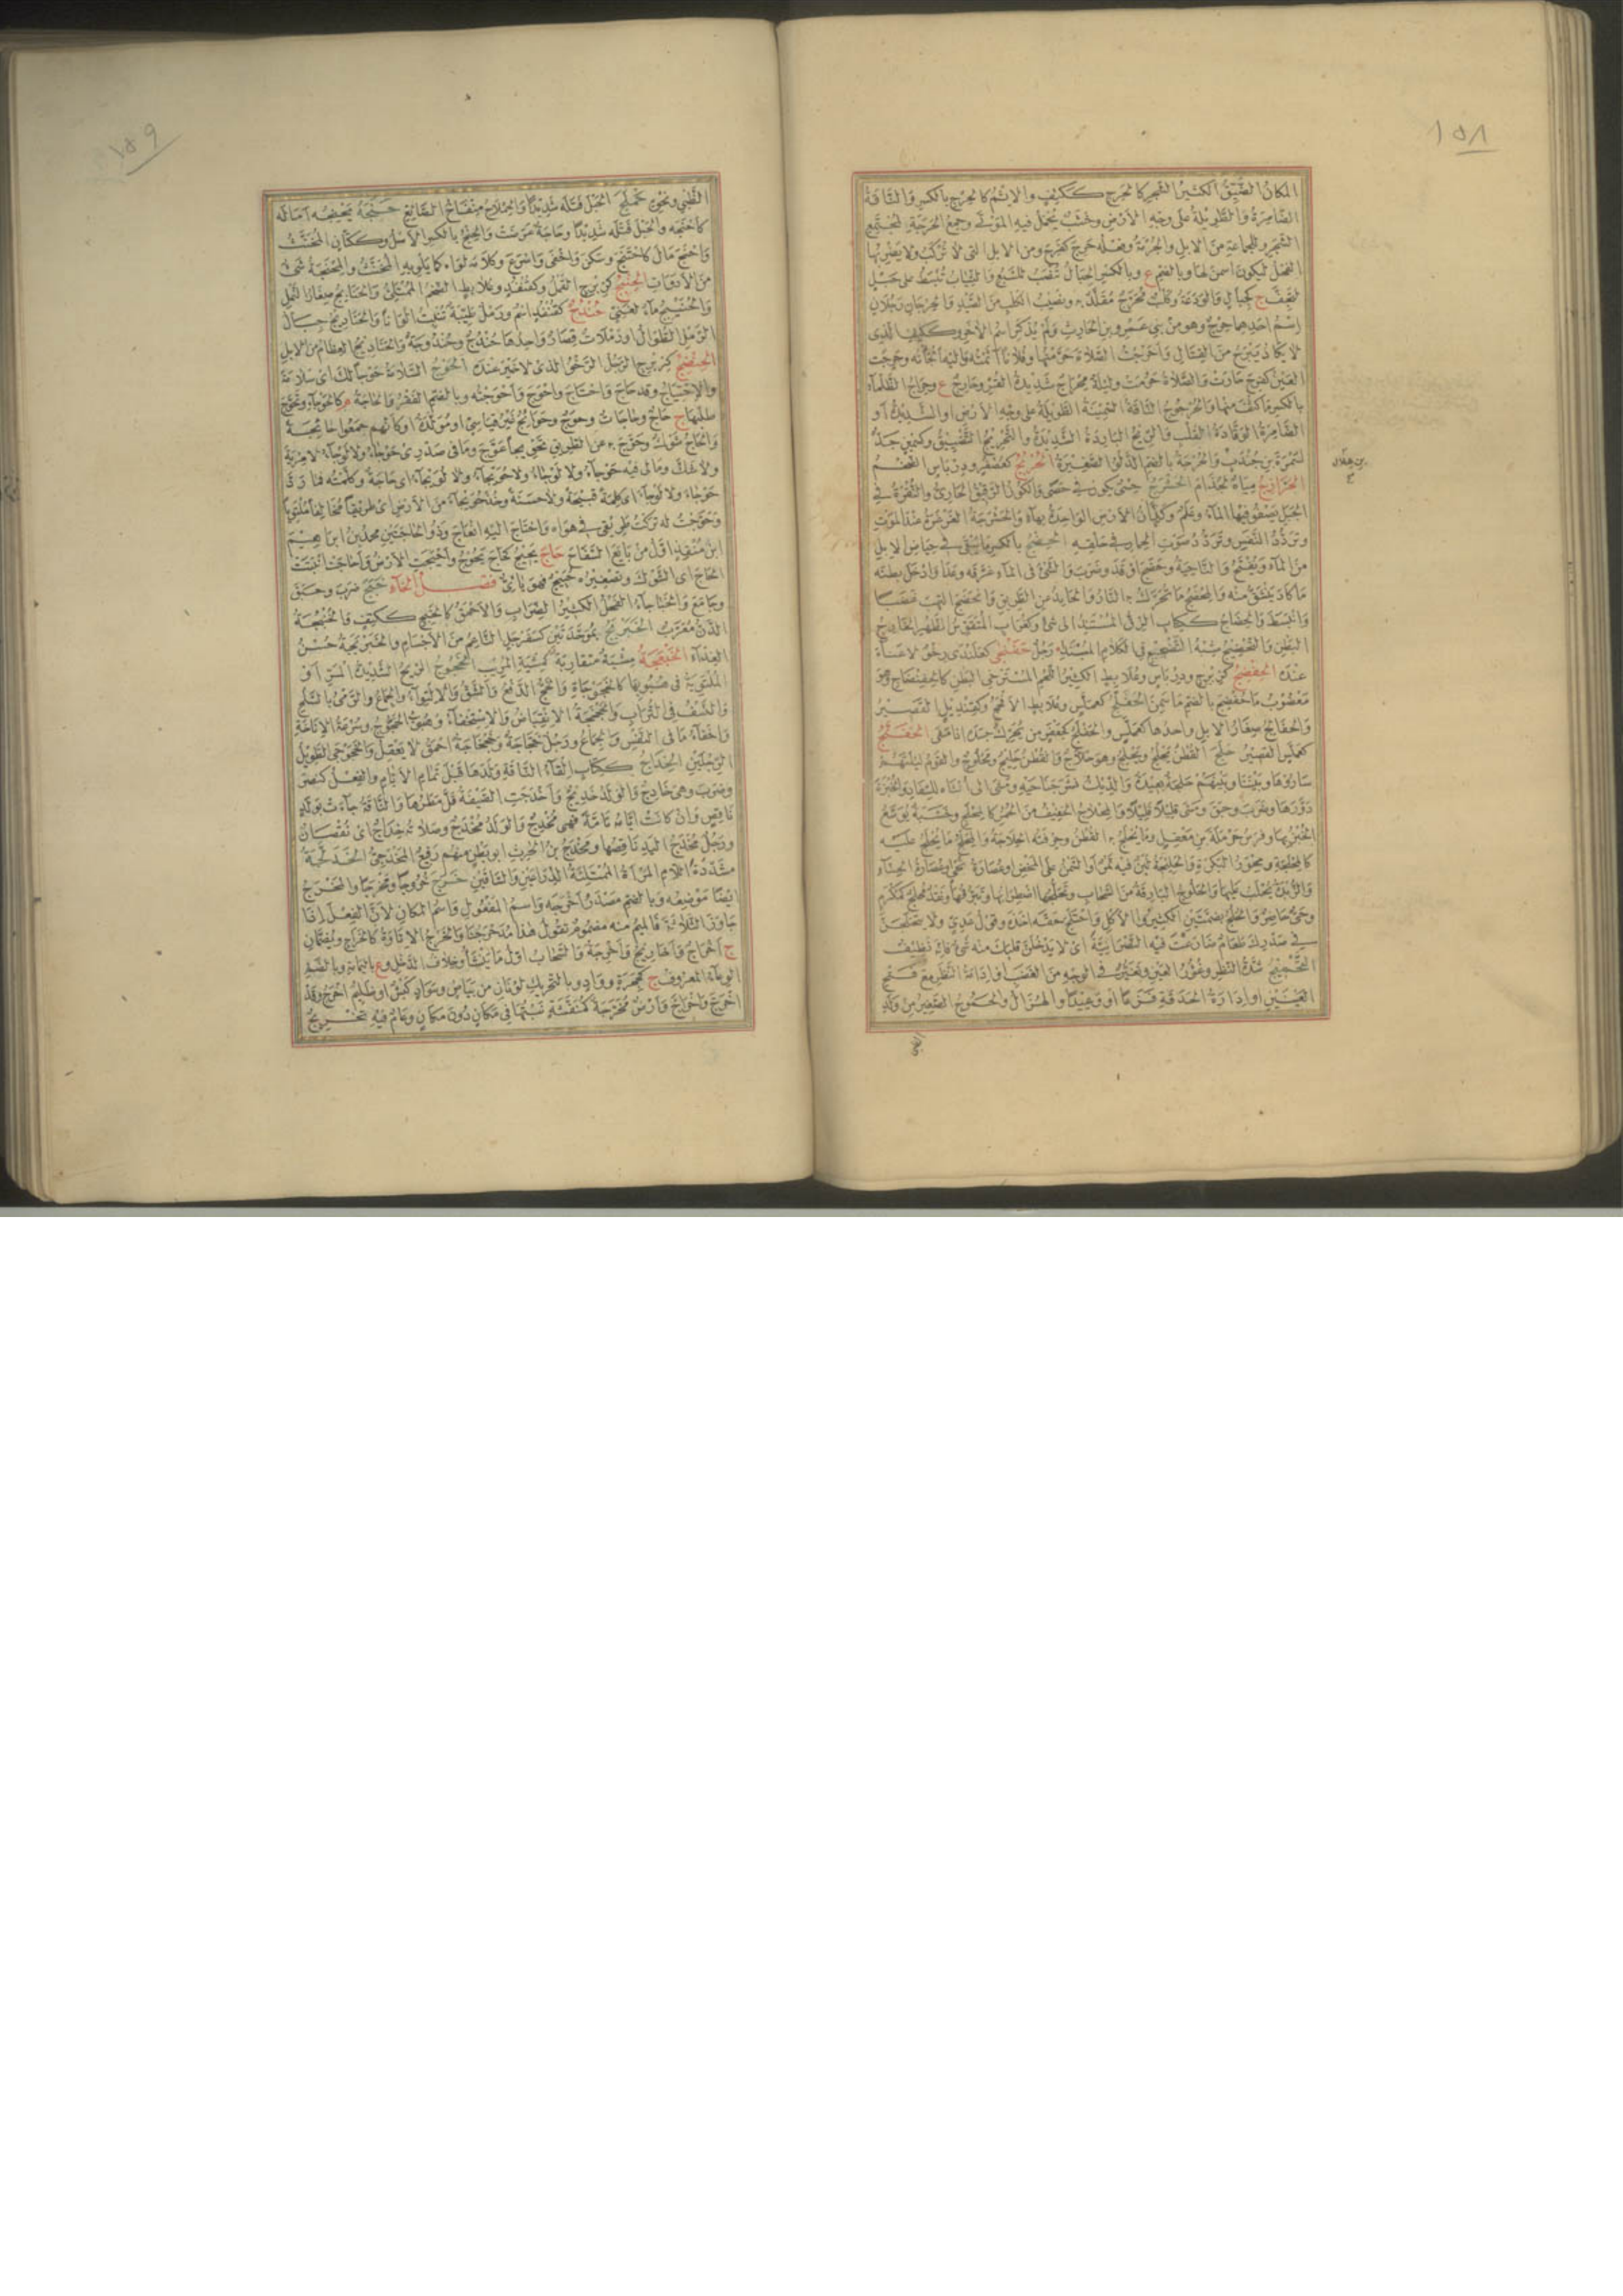 ١٥٨
المكانُ الضَّيِّقُ الكثيرُ الشجرِ كالحَرِجِ ككَتِفٍ والإثمُ كالحِرْجِ بالكسرِ والناقةُ
الضامِرةُ والطويلةُ على وجهِ الأرضِ وخشبٌ يُحملُ فيه الموتى وجمعُ الحَرَجةِ لمجتمعِ
الشجرِ وللجماعةِ من الإبلِ والحُرْمةُ وفعلُه حَرِجَ كفرِحَ ومن الإبلِ التي لا تُركبُ ولا يضربُها
الفحلُ ليكونَ أسمنَ لها وبالضم ع وبالكسرِ الحِبالُ تُنصبُ للسبعِ والثيابُ تُبسطُ على حبلٍ
لتجِفَّ ج كجبالٍ والوَدَعةُ وكلبٌ مُحَرَّجٌ مقلَّدٌ به ونصيبُ الكلبِ من الصيدِ والحِرجانِ رجلانِ
اسمُ أحدِهما حِرْجٌ وهو من بني عمرِو بنِ الحارثِ ولم يُذكرِ اسمُ الآخرِ وككَتِفٍ الذي
لا يكادُ يبرحُ من القتالِ وأحرجتُ الصلاةَ حرَّمتُها وفلانًا آثمتُه وإليه ألجأتُه وحرِجتِ
العينُ كفرِحَ حارتْ والصلاةُ حرُمتْ وليلةٌ مِحراجٌ شديدةُ القُرِّ وحارِجٌ ع وحِراجُ الظلماءِ
بالكسرِ ما كثُفَ منها والحُرجوجُ الناقةُ السمينةُ الطويلةُ على وجهِ الأرضِ أو الشديدةُ أو
الضامرةُ الوقّادةُ القلبِ والريحُ الباردةُ الشديدةُ والتحريجُ التضييقُ وكسمينٍ جدٌّ
لسمُرةَ بنِ جندبٍ والحُرجةُ بالضم الدلوُ الصغيرةُ الحُرْبُجُ كعُصفُرٍ ودِرباسٍ الضخمُ
بن هلال
الحَرازِجُ مياهٌ لجُذامَ الحَشْرَجُ حِسْيٌ يكونُ في حصًى والكوزُ الرقيقُ الحاريُّ والنُّقرةُ في
الجبلِ يصفو فيها الماءُ وعَلَمٌ وكَذّانُ الأرضِ الواحدةُ بهاءٍ والحشرجةُ الغرغرةُ عندَ الموتِ
وتردُّدُ النفَسِ وتردُّدُ صوتِ الحمارِ في حلقِه الحِضْجُ بالكسرِ ما يبقى في حياضِ الإبلِ
من الماءِ ويُفتحُ والناحيةُ وحضَجَ أوقدَ وضربَ والشيءَ في الماءِ غرَّقَه وعدا وأدخلَ بطنَه
ما كادَ ينشقُّ منه والمِحضجُ ما تُحرَّكُ به النارُ والحائدُ من الطريقِ وانحضجَ التهبَ غضبًا
وانبسطَ
البطنِ والتحضيجُ شبهُ التضجيعِ في الكلامِ المبتدَإ رجلٌ حَفَنْضى كعَلَنْدى رِخْوٌ لا غَناءَ
عندَه الحِفْضِجُ كزِبرِجٍ ودِرباسٍ وعُلابِطٍ الكثيرُ اللحمِ المسترخي البطنِ كالحِفِنضاجِ وهو
معضوبٌ ما حُفضِجَ بالضم ما سمِنَ الحَفَلَّجُ كعمَلَّسٍ وعُلابِطٍ الأفحجُ وكقِنديلٍ القصيرُ
والحفالِجُ صغارُ الإبلِ واحدُها كعمَلَّسٍ
كعمَلَّسٍ القصيرُ حلَجَ القطنَ يحلُجُ ويحلِجُ وهو حلّاجٌ والقطنُ حليجٌ ومحلوجٌ والقومُ ليلتَهم
ساروها وبيننا وبينهم حَلْجةٌ بعيدةٌ والديكُ نشرَ جناحَيه ومشى إلى أنثاه للسِّفادِ والخُبزةَ
دوَّرَها وضربَ وحبقَ ومشى قليلًا قليلًا والمِحلاجُ الخفيفُ من الحُمُرِ كالمِحلَجِ وخشبةٌ يوسَّعُ
الخبزُ بها وفرسُ حرملةَ بنِ معقلٍ وما يُحلجُ به القطنُ وحِرفتُه الحِلاجةُ والمِحلجُ ما يُحلجُ عليه
كالمِحلَجةِ ومِحوَرُ البَكَرةِ والحليجةُ لبنٌ فيه تمرٌ أو السمنُ على المخضِ أو عُصارةُ نِحْيٍ أو عُصارةُ الحِنّاءِ
والزبدةُ يُحلبُ عليها والحَلوجُ البارقةُ من السحابِ وتحلُّجُها اضطرابُها وتبرُّقُها ونقدٌ مُحلَجٌ كمُكرَمٍ
وحيٌّ حاضرٌ والحُلُجُ بضمتينِ الكثيرو الأكلِ واحتلجَ حقَّه أخذَه وقولُ عديٍّ ولا يتحلَّجنَّ
في صدرِك طعامٌ ضارعتَ فيه النصرانيةَ أي لا يدخُلنَّ قلبَك منه شيءٌ فإنه نظيفٌ
التحميجُ شدةُ النظرِ وغُؤورُ العينِ وتغيُّرٌ في الوجهِ من الغضبِ وإدامةُ النظرِ مع فتحِ
العينينِ أو إدارةُ الحدقةِ فزعًا أو وعيدًا والهزالُ والحَموجُ الصغيرُ من ولدِ
الظبي
١٥٩
الظبيِ ونحوِه حملجَ الحبلَ فتلَه شديدًا والحِملاجُ منفاخُ الصائغِ حنَجَه يحنِجُه أمالَه
كأحنجَه والحبلَ فتلَه شديدًا وحاجةٌ عرضتْ والحِنجُ بالكسرِ الأصلُ وككتّانٍ المخنَّثُ
واحتنجَ مالَ كأحنجَ وسكنَ وأخفى وأسرعَ وكلامَه لواه كما يلويه المخنَّثُ والمِحنجةُ شيءٌ
من الأدواتِ الحِنْبِجُ كزِبرِجٍ القملُ وكقُنفُذٍ وعُلابِطٍ الضخمُ الممتلئُ والحنابجُ صغارُ النملِ
والحُنَيبِجُ ماءٌ لغنيٍّ حُنْدُجٌ كقُنفُذٍ اسمٌ ورملٌ طيبةٌ تُنبتُ ألوانًا والحناديجُ حبالُ
الرملِ الطوالُ أو رملاتٌ قصارٌ واحدُها حُندُجٌ وحُندوجةٌ والحناديجُ العظامُ من الإبلِ
الحِنْضِجُ كزِبرِجٍ الرجلُ الرخوُ الذي لا خيرَ عندَه الحَوْجُ السلامةُ حوجًا لك أي سلامةً
والاحتياجُ وقد حاجَ واحتاجَ وأحوجَ وأحوجتُه وبالضم الفقرُ والحاجةُ م كالحَوجاءِ وتحوَّجَ
طلبَها ج حاجٌ وحاجاتٌ وحِوَجٌ وحوائجُ غيرُ قياسيٍّ أو مولَّدةٌ أو كأنهم جمعوا حائجةً
والحاجُ شوكٌ وحوَّجَ به عن الطريقِ تحويجًا عوَّجَ وما في صدري حوجاءُ ولا لوجاءُ لا مريةَ
ولا شكَّ وما لي فيه حوجاءُ ولا لوجاءُ ولا حُوَيجاءُ ولا لُوَيجاءُ أي حاجةٌ وكلَّمتُه فما ردَّ
حوجاءَ ولا لوجاءَ أي كلمةً قبيحةً ولا حسنةً وخذْ حُوَيجاءَ من الأرضِ أي طريقًا مخالفًا ملتويًا
وحوَّجتُ له تركتُ طريقي في هواه واحتاجَ إليه انعاجَ وذو الحاجتينِ محمدُ بنُ إبراهيمَ
ابنُ منقذٍ أولُ من بايعَ السفّاحَ حاجَ يحيجُ كحاجَ يحوجُ وأحيجتِ الأرضُ وأحاجتْ أنبتتْ
الحاجَ أي الشوكَ وتصغيرُه حُيَيجٌ فهو يائيٌّ فصل الخاء خبجَ ضربَ وحبقَ
وجامعَ والخَبَاجاءُ الفحلُ الكثيرُ الضرابِ والأحمقُ كالخبِجِ ككَتِفٍ والخُنبُجةُ
الدَّنُّ معرَّبُ الخَبَرْبَجُ بموحدتينِ كسفرجلٍ الناعمُ من الأجسامِ والخبربجةُ حسنُ
الغذاءِ الخَبْعَجةُ مشيةٌ متقاربةٌ كمشيةِ المريبِ الخَجوجُ الريحُ الشديدةُ المرِّ أو
الملتويةُ في هبوبِها كالخَجَوجاةِ والخجُّ الدفعُ والشقُّ والالتواءُ والجماعُ والرميُ بالسلحِ
والنسفُ في الترابِ والخجخجةُ الانقباضُ والاستخفاءُ وهبوبُ الخجوجِ وسرعةُ الإناخةِ
وإخفاءُ ما في النفسِ والجماعُ ورجلٌ خجّاجةٌ وخجخاجةٌ أحمقُ لا يعقلُ والخَجَوجى الطويلُ
الرجلينِ الخِداجُ ككِتابٍ إلقاءُ الناقةِ ولدَها قبلَ تمامِ الأيامِ والفعلُ كنصرَ
وضربَ وهي خادجٌ والولدُ خديجٌ وأخدجتِ الصيفةُ قلَّ مطرُها والناقةُ جاءتْ بولدٍ
ناقصٍ وإن كانت أيامُه تامةً فهي مُخدِجٌ والولدُ مُخدَجٌ وصلاتُه خِداجٌ أي نقصانٌ
ورجلٌ مُخدَجُ اليدِ ناقصُها ومُخدَجُ بنُ الحرثِ أبو بطنٍ منهم رُفَيعٌ المُخدَجيُّ الخَدَلَّجةُ
مشددةَ اللامِ المرأةُ الممتلئةُ الذراعينِ والساقينِ خرجَ خروجًا ومخرجًا والمخرجُ
أيضًا موضعُه وبالضم مصدرُ أخرجَه واسمُ المفعولِ واسمُ المكانِ لأن الفعلَ إذا
جاوزَ الثلاثةَ فالميمُ منه مضمومٌ تقولُ هذا مُدَحرَجُنا والخَرْجُ الإتاوةُ كالخراجِ ويُضمّانِ
ج أخراجٌ وأخاريجُ وأخرجةٌ والسحابُ أولُ ما ينشأُ وخلافُ الدخلِ وع باليمامةِ وبالضم
الوعاءُ المعروفُ ج كجِحَرةٍ ووادٍ وبالتحريكِ لونانِ من بياضٍ وسوادٍ كبشٌ أو ظليمٌ أخرجُ وقد
اخرجَّ واخراجَّ وأرضٌ مُخرَّجةٌ كمُنقَّشةٍ نبتُها في مكانٍ دونَ مكانٍ وعامٌ فيه تخريجٌ